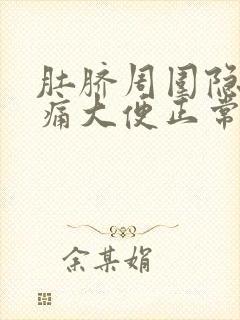 肚脐周围隐
痛大便正常
余某娟